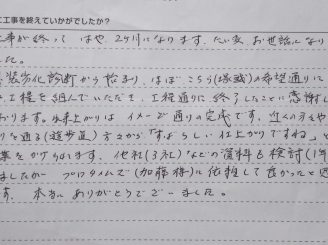 工事を終えていかがでしたか?
工事が終って はや、2ヶ月になります、たい変 お世話になり
した。
装劣化診断から始まり、ほぼ こちら(塚越)の希望通りに
工程を組んでいただき、工程通りに終了したことに感謝し
おります。出来上がりは イメージ通りの完成です、近くの方々や
を通る(遊歩道)方々から"すばらしい仕上がりですね"と
葉をかけられます、他社(3社)などの資料も検討(1年
ましたが プロタイムズ(加藤様)に依頼して良かったと思
す、本当に ありがとうございました。